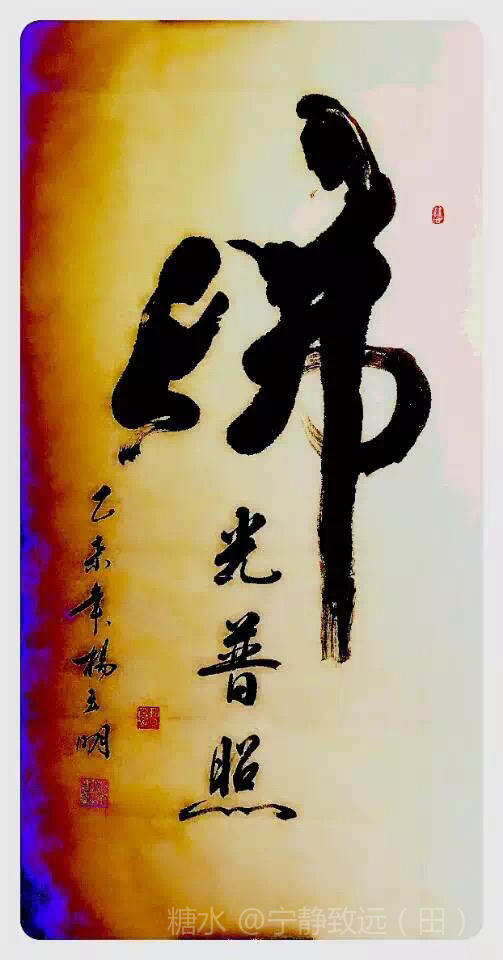 佛
光普照
乙未年楊明
糖水 @宁静致远（田）